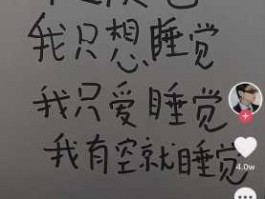 我只想睡觉
我只爱睡觉
我有空就睡觉
4.0w